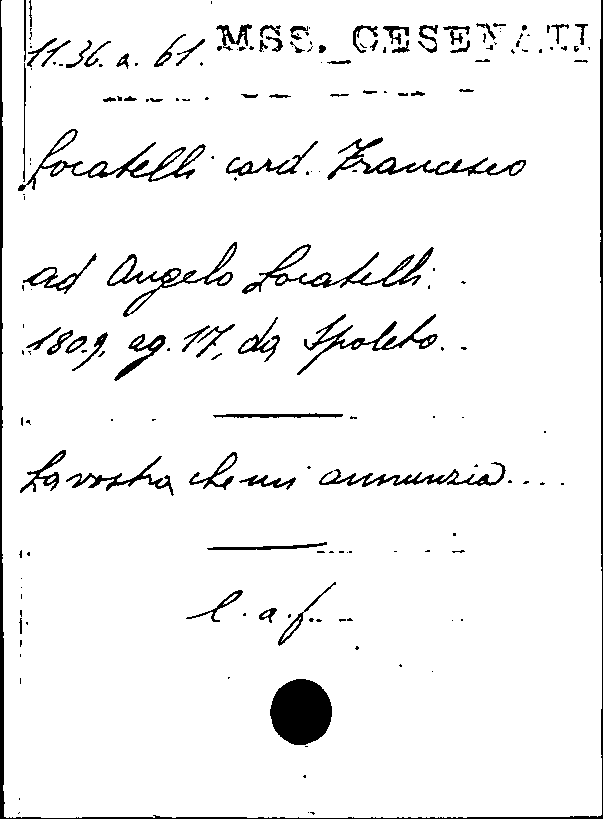 11.36. a. 61. MSS. CESENATI
Locatelli card. Francesco
ad Angelo Locatelli.
1809, ag. 17, da Spoleto.
La vostra che mi annunzia....
l. a. f.